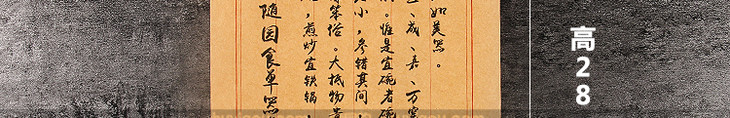 如美器。
、成、嘉、万窑
。惟是宜碗者碗
小,参错其间,
笨俗。大抵物
,煎炒宜铁锅,
随园食单
高28